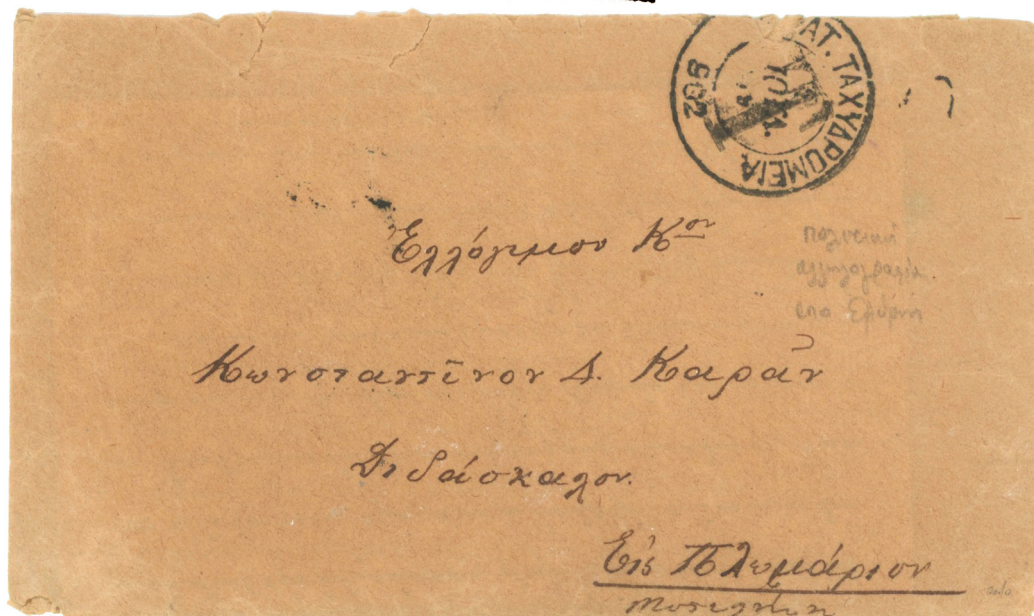 ΣΤΡΑΤ. ΤΑΧΥΔΡΟΜΕΙΑ
902
T
Ἐλλόγιμον Κον
πολιτική
αλληλογραφία
από Σμύρνη
Κωνσταντῖνον Δ. Καρᾶν
Διδάσκαλον.
Εἰς Πλωμάριον
Μυτιλήνη